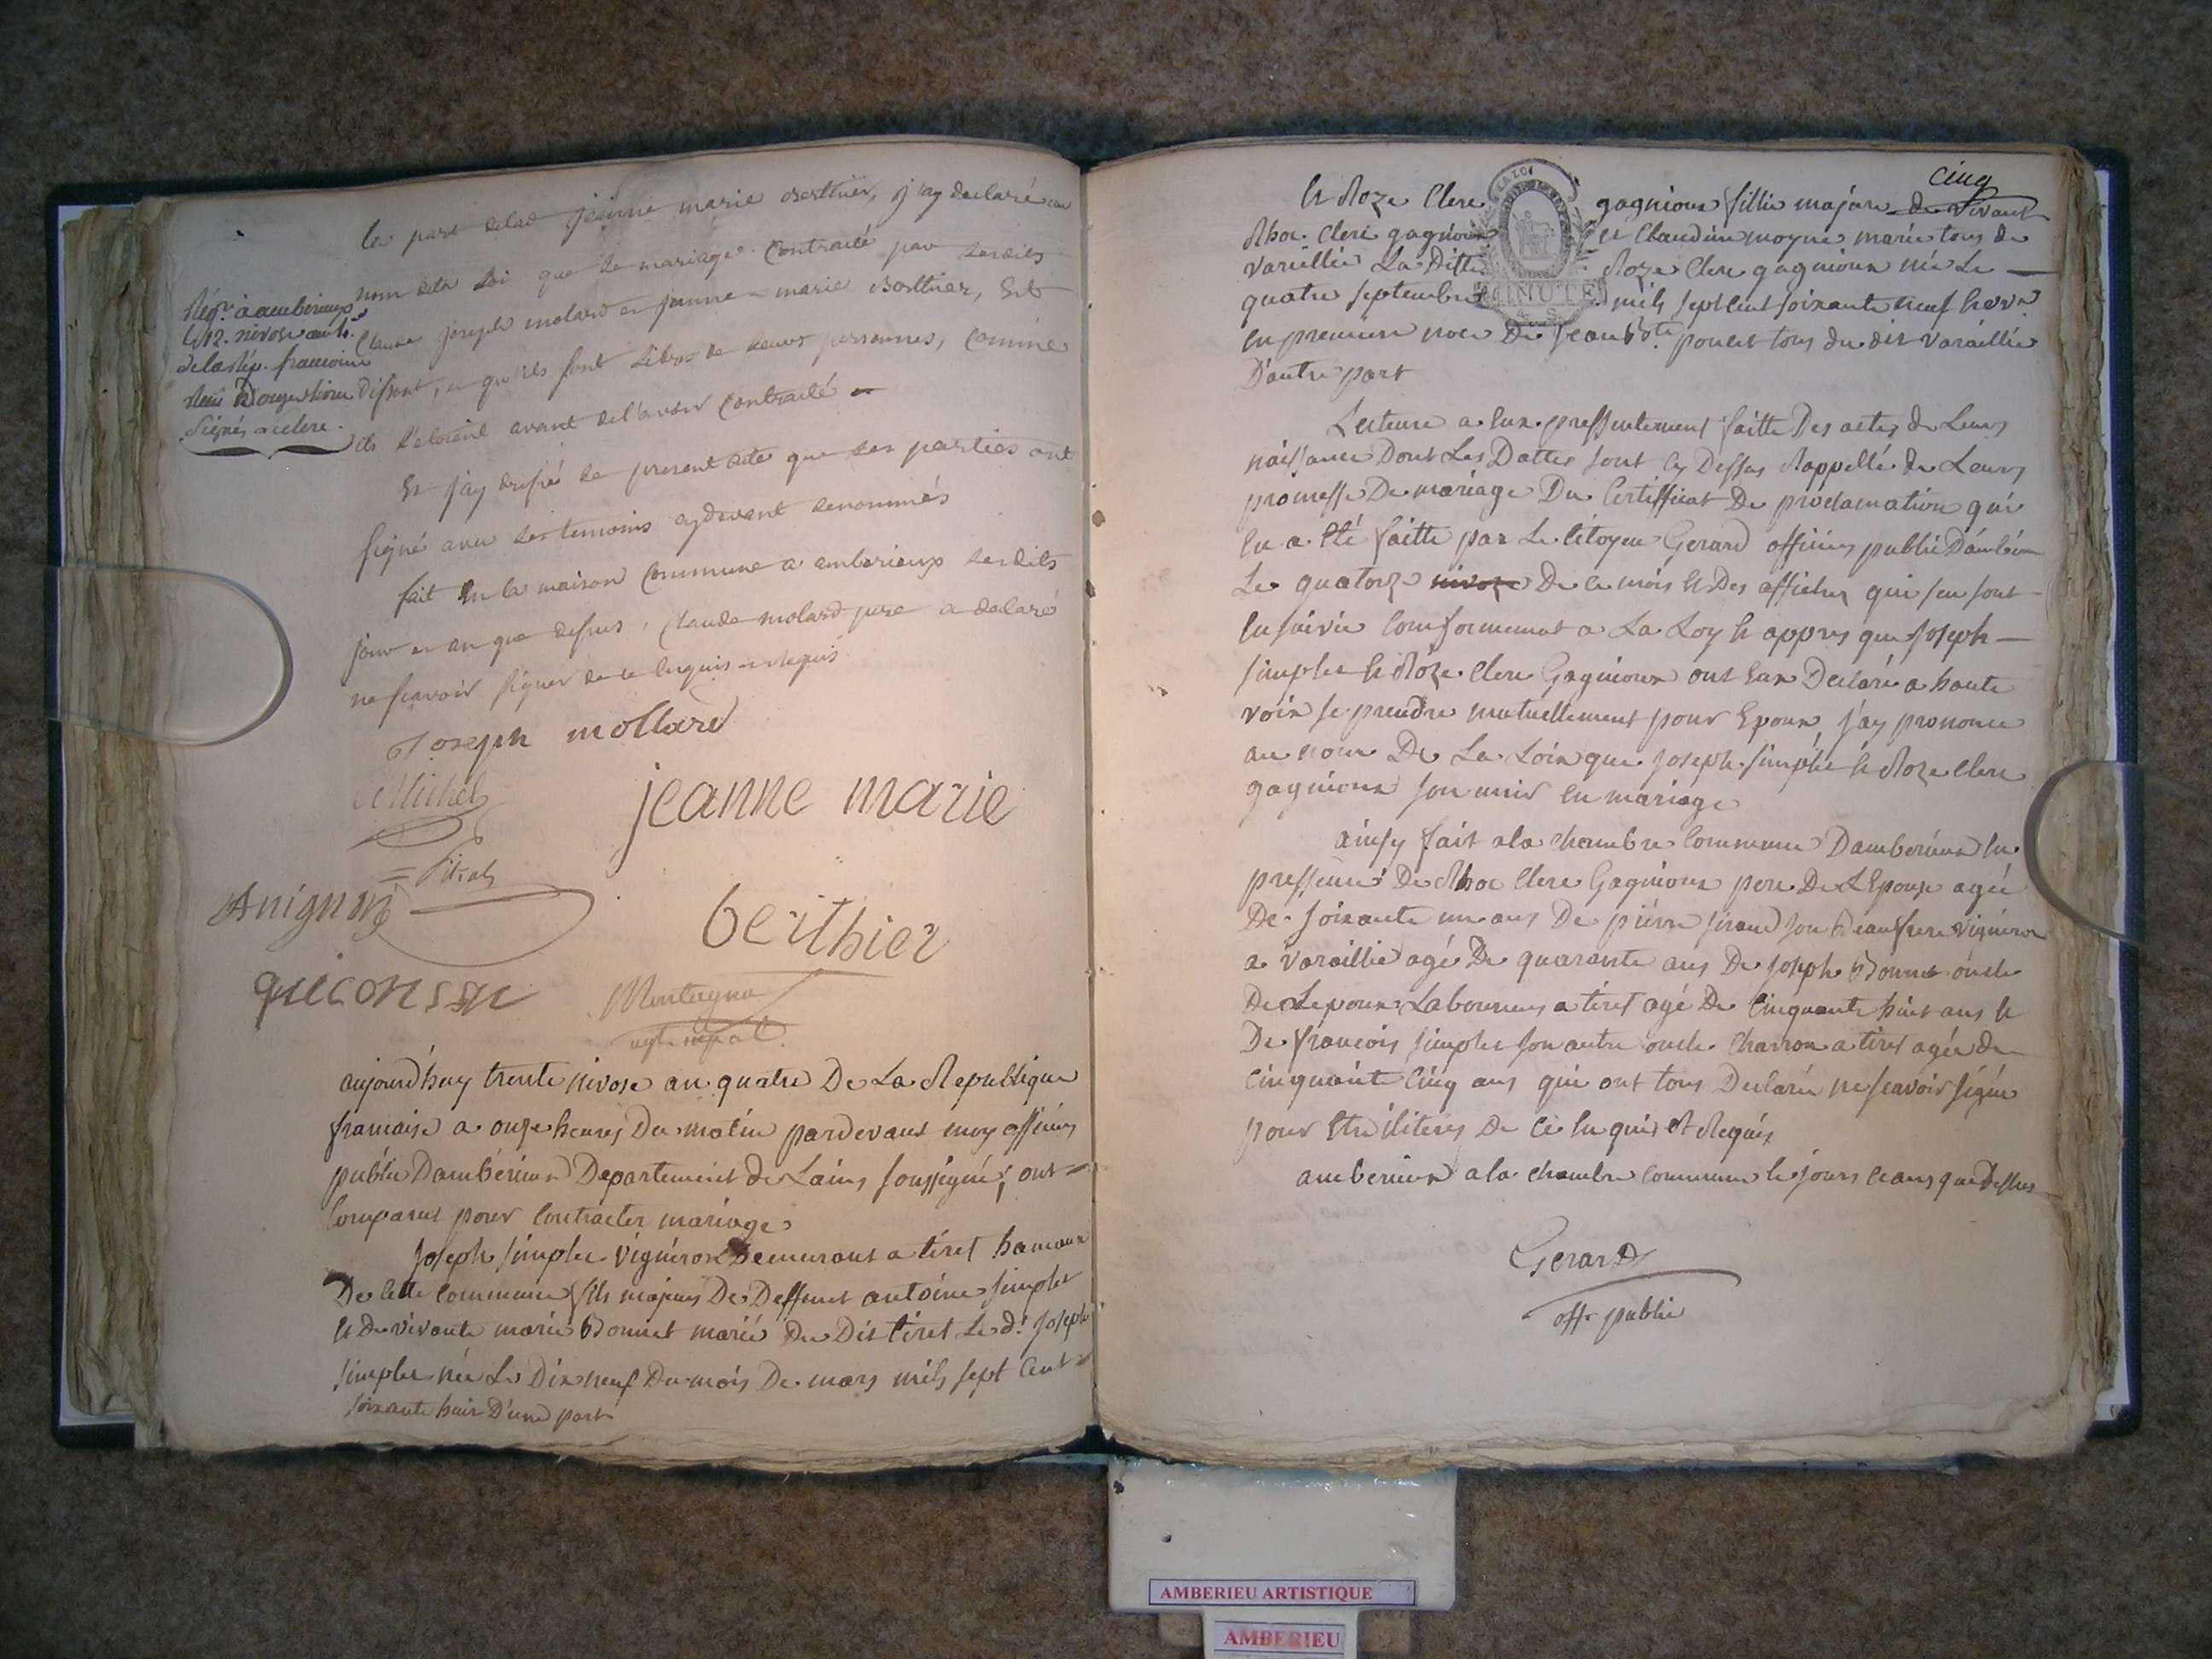 la part de lad jeanne marie Berthier, j'ay declaré au
nom de la Loi que le mariage contracté par lesdits
Claude joseph molard et jeanne marie Berthier, Est
dissent, et qu'ils sont libres de leurs personnes, comme
ils l'etoient avant de l'avoir contracté
Et j'ay dressé le present acte que les parties ont
signé avec les temoins cydevant denommés
fait En la maison Commune a amberieux lesdits
jour et an que dessus, Claude molard pere a declaré
ne scavoir signer de ce Enquis et Requis
Regré a amberieux
le 12 nivose an 4e
de la Rép. francoise
signés
Joseph mollard
jeanne marie
berthier
aujourd'huy trente nivose an quatre De La Republique
francaise a onze heures Du matin pardevant moy officier
public Dambérieux Departement de Lains soussigné, ont
Comparus pour Contracter mariage
Joseph Simples vigneron Demeurant a tiret hameaux
De Cette Commune fils majeurs De Deffunct antoine Simples
Et De vivante marie Bonnet marié Du Dit tiret Le dt Joseph
Simples née Le Dix neuf Du mois De mars mils sept Cent
soixante huit D'une part
cinq
Et Roze Clere gagnioux fillie majure de vivant
Roc Clere gagnioux et Claudine moyne marie tous de
varéillie La Ditte Roze Clere gagnioux née Le
quatre septembre mils sept Cent soixante neuf
LA LOI
MINUTE
En premiere noce De Jean Bte poncet tous du dit varaillie
D'autre part
Lecture a Eux pressentement faitte Des actes de Leurs
naissance Dont Les Dattes sont Cy Dessus Rappellé de Leurs
promesse De mariage Du Certifficat De proclamation qui
En a Eté faitte par Le Citoyen Gerard officier public
Le quatorze nivoze De ce mois Et Des affiches qui s'en sont
Ensuivie Conformement a La Loy Et appres que Joseph
Simples Et Roze Clere Gagnioux ont Eux Declaré a haute
voix se prendre mutuellement pour Epoux, j'ay prononcé
au nom De La Loix que Joseph Simples Et Roze Clere
gagnioux son unis En mariage
ainsy fait a la chambre Commune Damberieux En
pressence De Roc Clere Gagnioux pere De LEpouse agée
De soixante un ans De pierre Siraud son Beaufrere vigneron
a varaillie agé De quarante ans De Joseph Bonnet oncle
De Lepoux Laboureurs a tiret agé De Cinquante huit ans Et
De francois Simples son autre oncle Charron a tiret agée de
Cinquante Cinq ans qui ont tous Declarée ne scavoir signé
pour Etre iliteres De Ce Enquis Et Requis
amberieux a la chambre Commune Le jours Et ans que Dessus
Gerard
off. public
AMBERIEU ARTISTIQUE
AMBERIEU